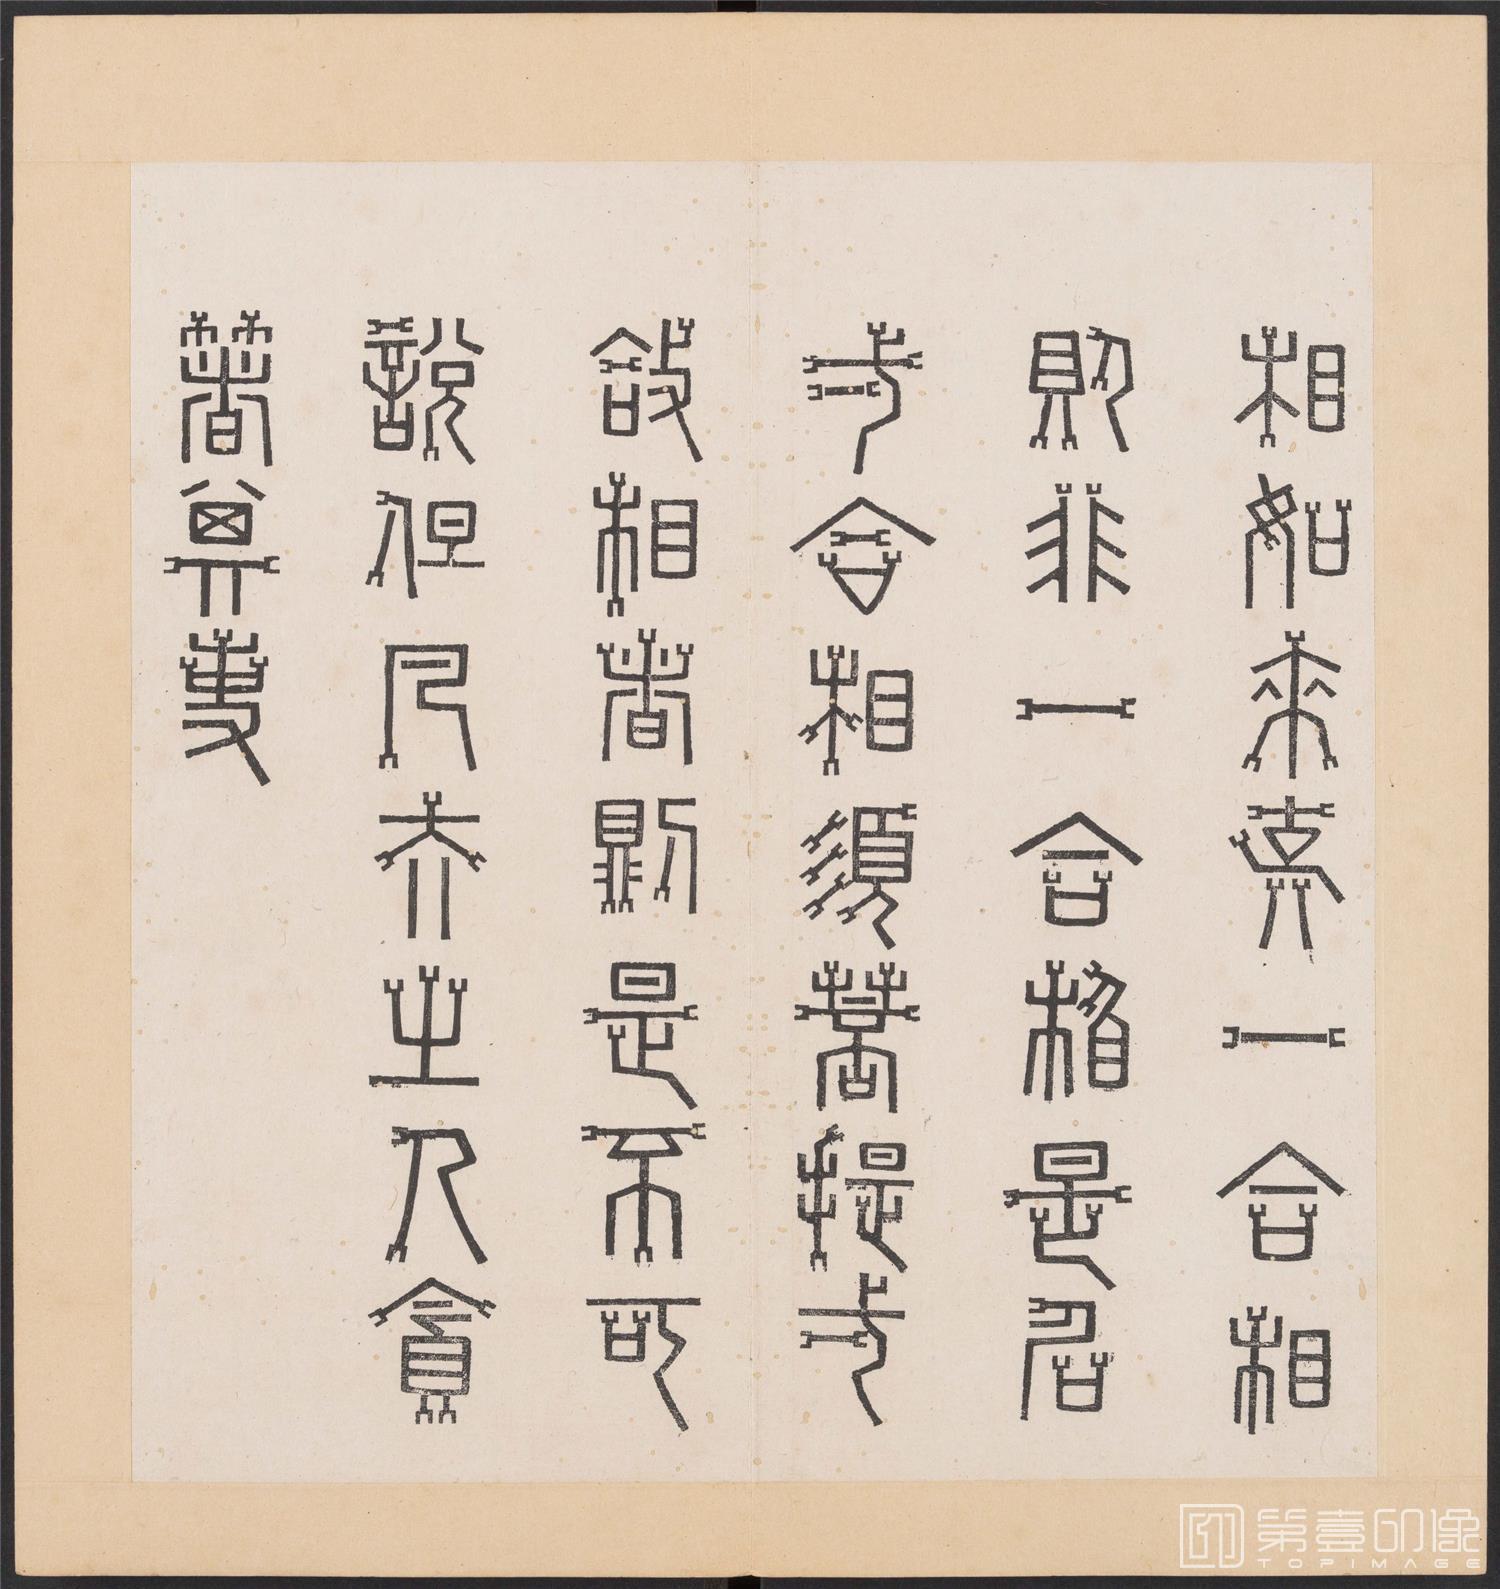 相如來說一合相
則非一合相是名
一合相須菩提一
合相者則是不可
說但凡夫之人貪
著其事
第壹印像
TOPIMAGE